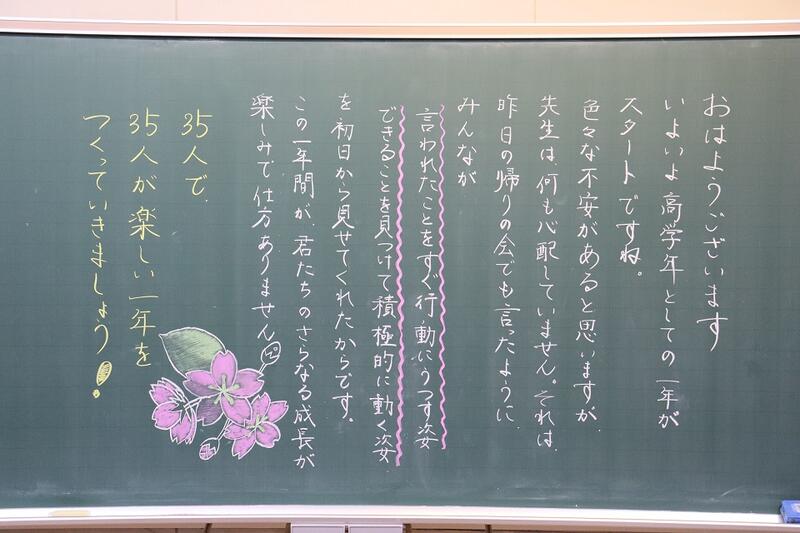 おはようございます
いよいよ高学年としての一年が
スタートですね。
色々な不安があると思いますが、
先生は、何も心配していません。それは、
昨日の帰りの会でも言ったように、
みんなが
言われたことをすぐ行動にうつす姿
できることを見つけて積極的に動く姿
を初日から見せてくれたからです。
この一年間が、君たちのさらなる成長が
楽しみで仕方ありません。
35人で、
35人が楽しい一年を
つくっていきましょう!